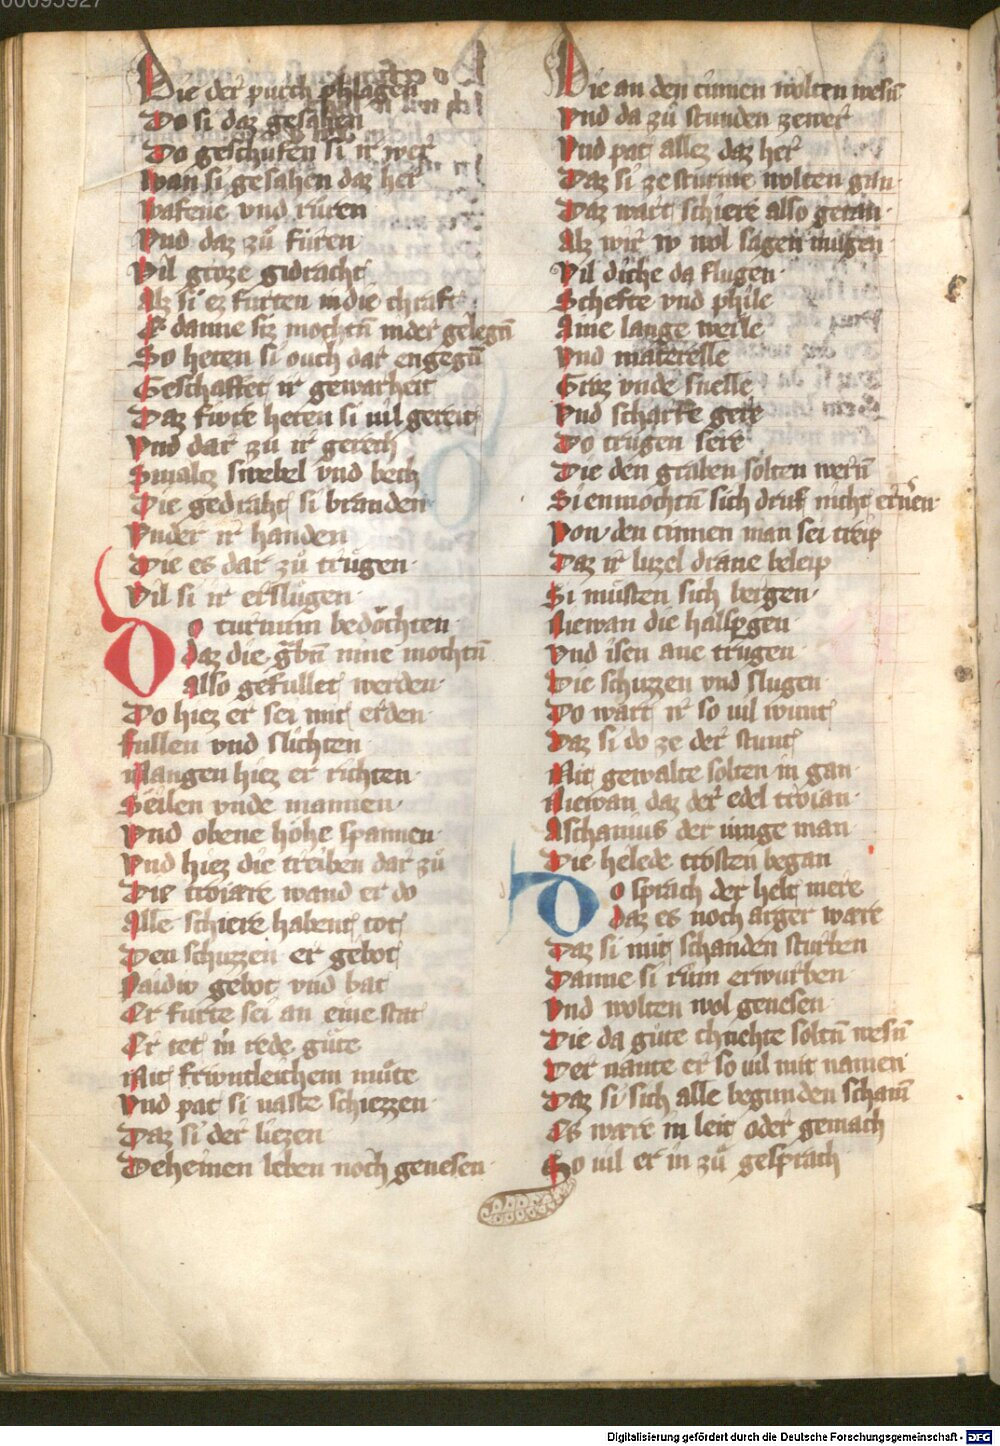 Die der purch phlagen
Do si daz gesahen
Do geschufen si ir wer
wan si gesahen daz her
wafene vnd růren
Vnd daz zů fůren
Vil groze gidracht
Als si ez furten in die chraft
E danne siz mochtn̄ nider gelegn̄
So heten si ouch dar engegn̄
Geschaffet ir gewarheit
Daz fiwre heten si uil gereit
Vnd dar zu ir gerech
Smalz swebel vnd bech
Die gedraht si branden
Vnder ir handen
Die es dar zů trůgen
Vil si ir erslůgen
Do turnum bedǒchten
daz die gͣbn̄ nine mochtn̄
also gefullet werden
Do hiez er sei mit erden
fullen vnd slichten
Mangen hiez er richten
Seilen vnde mannen
Vnd obene hohe spannen
Vnd hiez die treiben dar zů
Die troiare wand er do
Alle schiere habent tot
Den schuzzen er gebot
Saidiu gebot vnd bat
Er furte sei an eine stat
Er tet in rede gůte
Mit friwntleichem můte
Vnd pat si uaste schiezzen
Daz si der liezen
Deheinen leben noch genesen
Die an den cinnen wolten wesn̄
Vnd da zů stunden zewer
Vnd pat allez daz her
Daz si ze sturme wolten gan
Daz wart schiere also getan
Als wir iv wol sagen mugen
Vil diche da flugen
Schefte vnd phile
Aine lange weile
Vnd materelle
Groz vnde snelle
Vnd scharfe gere
Do trugen sere
Die den graben solten wern̄
Si enmochtn̄ sich druf nicht ernern
Von den cinnen man sei treip
Daz ir luzel drane beleip
Si můsten sich bergen
Niewan die halspgen
Vnd isen ane trůgen
Die schuzzen vnd slugen
Do wart ir so uil wunt
Daz si do ze der stunt
Mit gewalte solten in gan
Niewan daz der edel troian
Aschanius der iunge man
Die helede trosten began
Do sprach der helt mere
daz es noch arger ware
Daz si mit schanden sturben
Danne si rům erwurben
Vnd wolten wol genesen
Die da gůte chnehte soltn̄ wesn̄
Der nante er so uil mit namen
Daz si sich alle begunden scham̄
Es ware in leit oder gemach
So uil er in zů gesprach
Digitalisierung gefördert durch die Deutsche Forschungsgemeinschaft - DFG